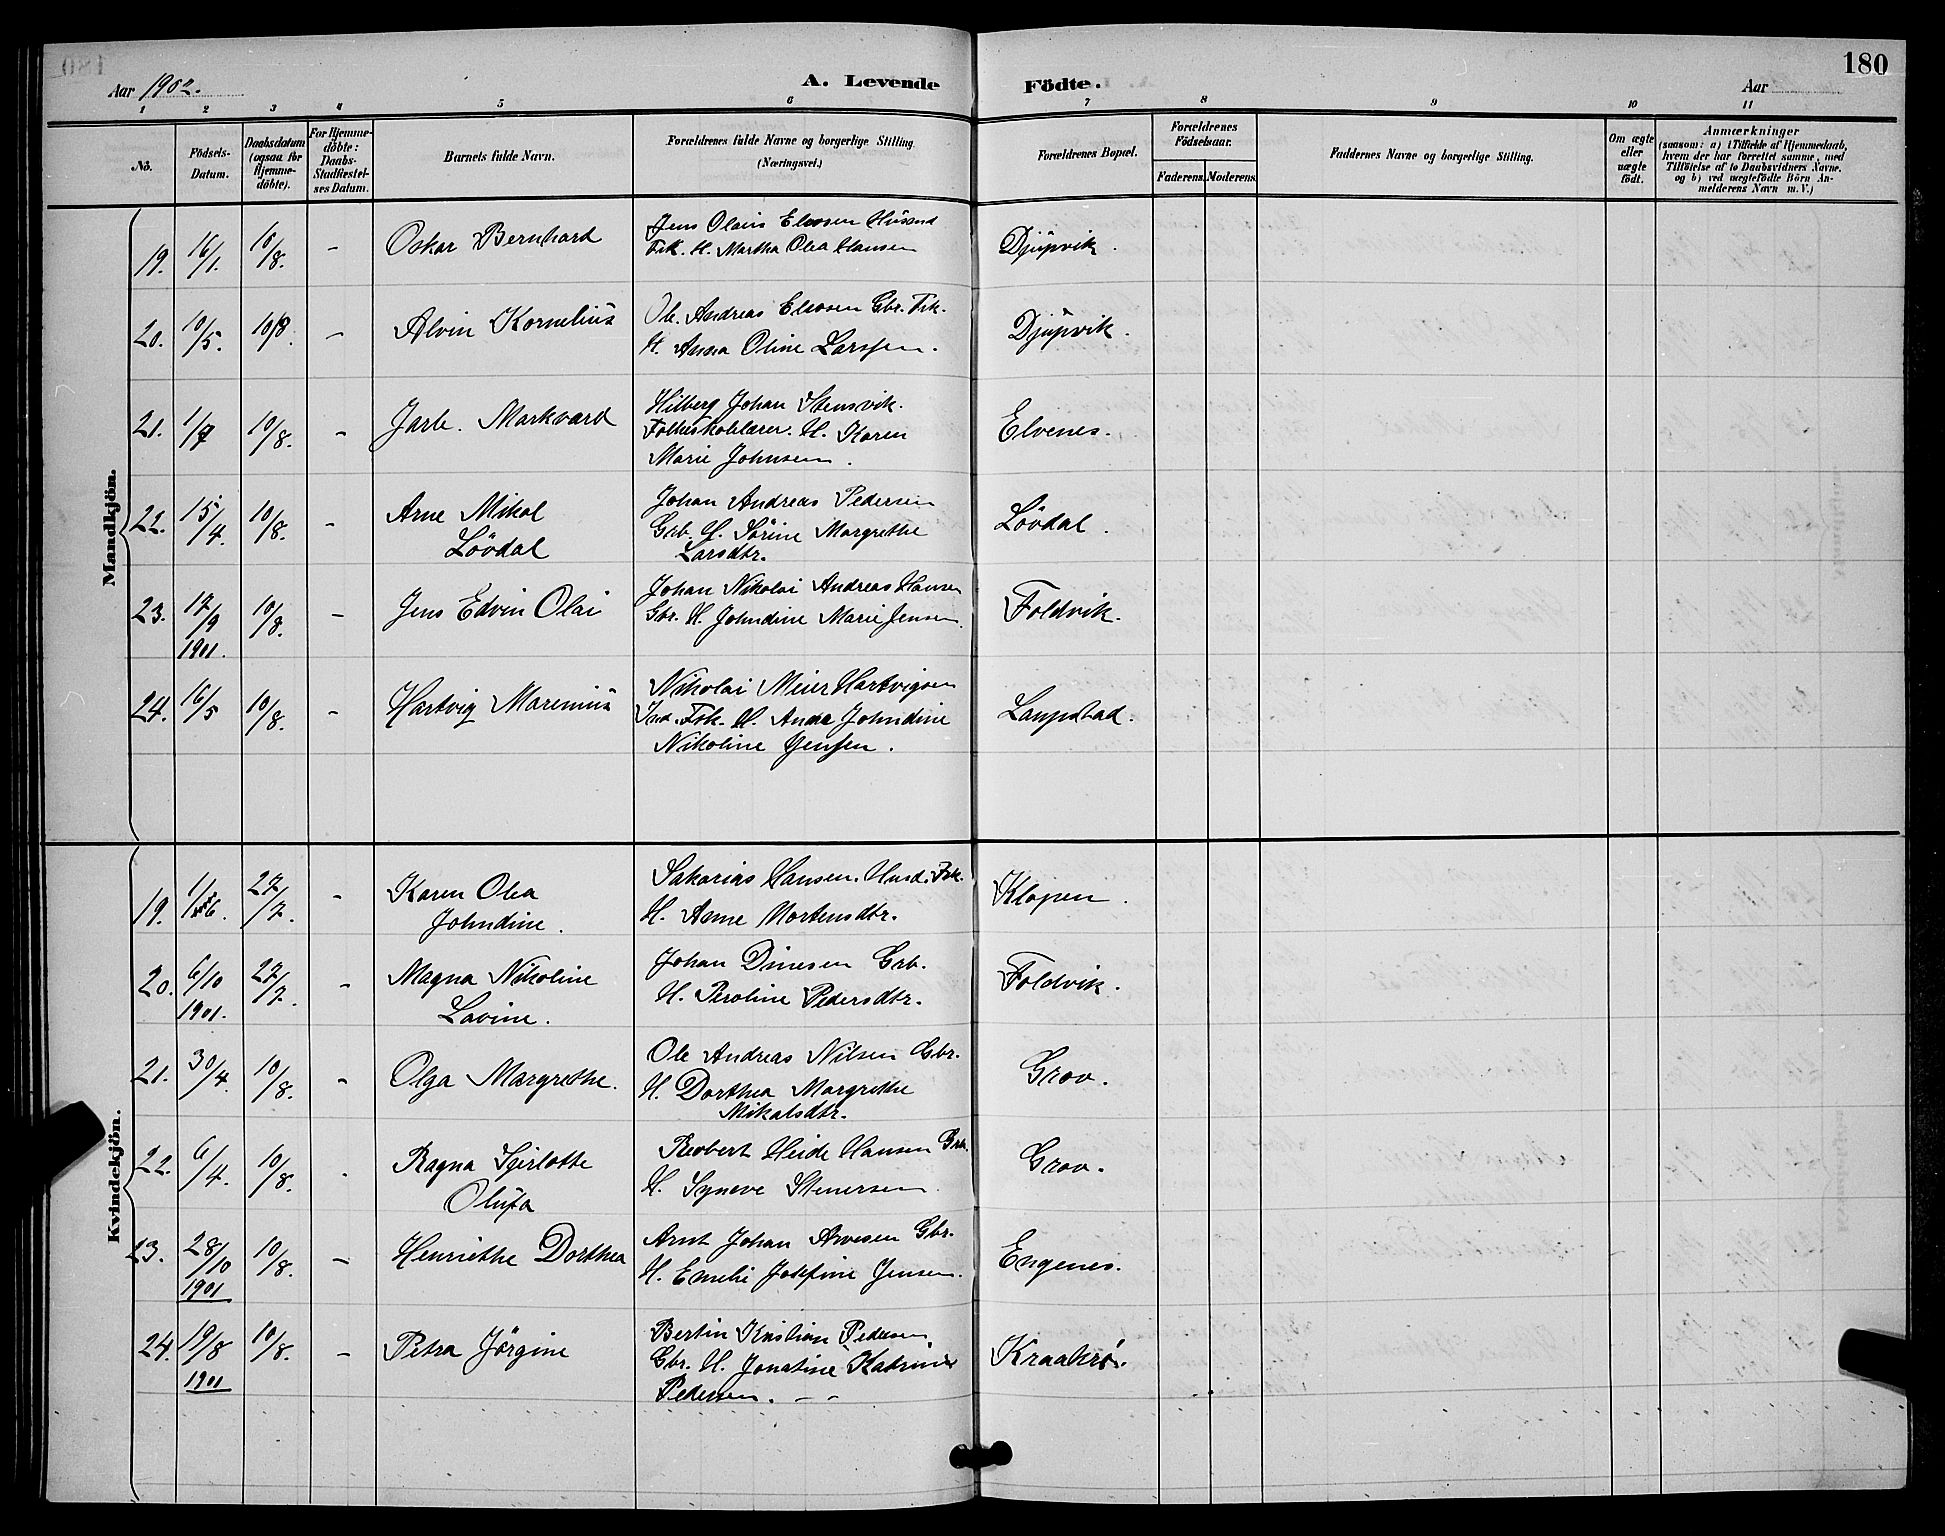 180
Aar 1902.
A. Levende Födte.
Aar
1 2 3 4 5 6 7 8 9 10 11
No.
Födsels-
Datum.
Daabsdatum
(ogsaa for
Hjemme-
döbte).
For Hjemme-
döbte:
Daabs-
Stadfæstel-
ses Datum.
Barnets fulde Navn.
Forældrenes fulde Navne og borgerlige Stilling.
(Næringsvei.)
Forældrenes Bopæl.
Forældrenes
Födselsaar.
Faderens. Moderens.
Faddernes Navne og borgerlige Stilling.
Om ægte
eller
uægte
födt.
Anmærkninger
(saasom: a) i Tilfælde af Hjemmedaab,
hvem der har forrettet samme, med
Tilföielse af to Daabsvidners Navne.
og b) ved uægtefödte Börn An-
melderens Navn m. V.)
Mandkjön.
19. 16/1. 10/8. - Oskar Bernhard
Jens Olaus Eleosen Husmd
Fsk. H. Martha Olea Hansen
Djupvik.
20. 10/5. 10/8. - Alvin Kornelius
Ole Andreas Eleosen Gbr. Fsk.
H. Anna Oline Larssen.
Djupvik.
21. 1/7 10/8. - Jarle Markvard
Hilberg Johan Stensvik.
Folkeskolelærer. H. Karen
Marie Johnsen.
Elvenes.
22. 15/4. 10/8. - Arne Mikal
Lövdal
Johan Andreas Pedersen
Grb. H. Sörine Margrethe
Larsdtr.
Lövdal.
23. 17/9 1901. 10/8. - Jens Edvin Olai
Johan Nikolai Andreas Hansen
Gbr. H. Johndine Marie Jensen.
Foldvik.
24. 16/5 10/8. - Hartvig Marenius
Nikolai Meier Hartvigsen
Ind. Fsk. H. Anna Johndine
Nikoline Jensen.
Laupstad.
Kvindekjön.
19. 1/6. 27/7. - Karen Olea
Johndine.
Sakarias Hansen. Husd. Fsk.
H. Anne Mortensdtr.
Klopen.
20. 6/10 1901. 27/7. - Magna Nikoline
Lavine.
Johan Dinesen Grb.
H. Peroline Pedersdtr.
Foldvik.
21. 30/4. 10/8. - Olga Margrethe.
Ole Andreas Nilsen Gbr.
H. Dorthea Margrethe
Mikalsdtr.
Grov.
22. 6/4. 10/8. - Ragna Sjerlotte
Olufa
Robert Heide Hansen Grb.
H. Syneve Stenersen.
Grov.
23. 28/10 1901 10/8. - Henriethe Dorthea
Arnt Johan Arvesen Gbr.
H. Emelie Josefine Jensen.
Engenes.
24. 19/8 1901 10/8. - Petra Jörgine
Bertin Kristian Pedersen
Gbr. H. Jonatine Katrine
Pedersen. - -
Kraakrö.